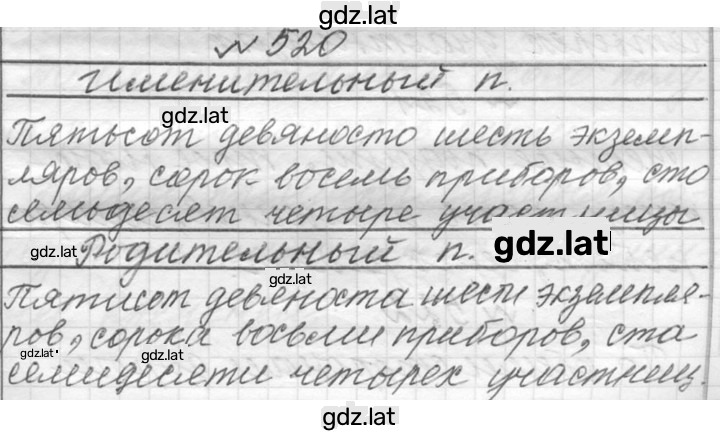 gdz.lat
№ 520
Именительный п.
gdz.lat
Пятьсот девяносто шесть экземп-
ляров, сорок восемь приборов, сто
семьдесят четыре участницы
gdz.lat Родительный п. gdz.lat
gdz.lat
Пятисот девяноста шести экземпля-
ров, сорока восьми приборов, ста
gdz.lat gdz.lat
семидесяти четырех участниц.
gdz.lat